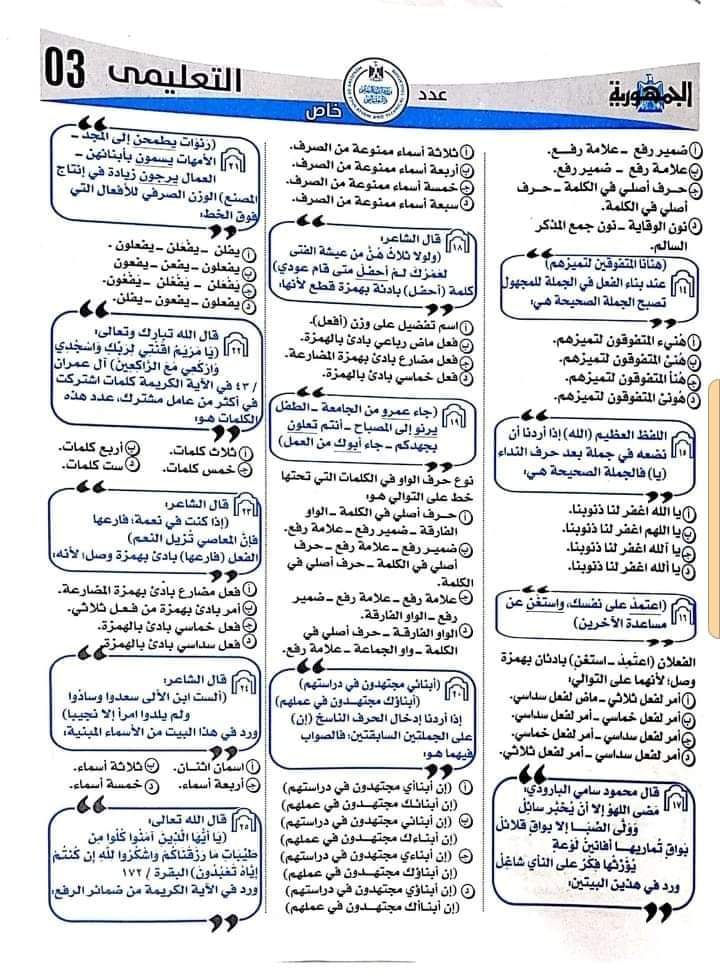 الجمهورية
عدد
خاص
التعليمى 03
أ ضمير رفع - علامة رفع.
ب علامة رفع - ضمير رفع.
ج حرف أصلي في الكلمة - حرف
أصلي في الكلمة.
د نون الوقاية - نون جمع المذكر
السالم.
١٤ (هنأنا المتفوقين لتميزهم)
عند بناء الفعل في الجملة للمجهول
تصبح الجملة الصحيحة هي:
أ هُنيء المتفوقون لتميزهم.
ب هُنئ المتفوقون لتميزهم.
ج هُنأ المتفوقون لتميزهم.
د هُونئ المتفوقون لتميزهم.
١٥ اللفظ العظيم (الله) إذا أردنا أن
نضعه في جملة بعد حرف النداء
(يا) فالجملة الصحيحة هي:
أ يا الله اغفر لنا ذنوبنا.
ب يا اللهم اغفر لنا ذنوبنا.
ج يا آلله اغفر لنا ذنوبنا.
د يا ألله اغفر لنا ذنوبنا.
١٦ (اعتمِدْ على نفسك، واستغْنِ عن
مساعدة الآخرين)
الفعلان (اعتمِدْ - استغنِ) بادئان بهمزة
وصل؛ لأنهما على التوالي:
أ أمر لفعل ثلاثي - ماض لفعل سداسي.
ب أمر لفعل خماسي - أمر لفعل سداسي.
ج أمر لفعل سداسي - أمر لفعل خماسي.
د أمر لفعل سداسي - أمر لفعل ثلاثي.
١٧ قال محمود سامي البارودي:
مَضى اللَهوُ إلا أنْ يُخبَّر سائِلُ
وَوَلَّى الصِّبا إلا بواقٍ قلائلُ
بواقٍ تُماريها أفانينُ لَوعَةٍ
يُوَرِّثُها فِكْرٌ على النأيِ شاغِلُ
ورد في هذين البيتين:
أ ثلاثة أسماء ممنوعة من الصرف.
ب أربعة أسماء ممنوعة من الصرف.
ج خمسة أسماء ممنوعة من الصرف.
د سبعة أسماء ممنوعة من الصرف.
١٨ قال الشاعر:
(ولولا ثلاثٌ هُنَّ من عيشة الفتى
لعَمرُكَ لمْ أحفِلْ متى قام عودي)
كلمة (أحفل) بادئة بهمزة قطع لأنها:
أ اسم تفضيل على وزن (أفعل).
ب فعل ماض رباعي بادئ بالهمزة.
ج فعل مضارع بادئ بهمزة المضارعة.
د فعل خماسي بادئ بالهمزة.
١٩ (جاء عمرو من الجامعة - الطفل
يرنو إلى المصباح - أنتم تعلون
بجهدكم - جاء أبوك من العمل)
نوع حرف الواو في الكلمات التي تحتها
خط على التوالي هو:
أ حرف أصلي في الكلمة - الواو
الفارقة - ضمير رفع - علامة رفع.
ب ضمير رفع - علامة رفع - حرف
أصلي في الكلمة - حرف أصلي في
الكلمة.
ج علامة رفع - علامة رفع - ضمير
رفع - الواو الفارقة.
د الواو الفارقة - حرف أصلي في
الكلمة - واو الجماعة - علامة رفع.
٢٠ (أبنائي مجتهدون في دراستهم)
(أبناؤك مجتهدون في عملهم)
إذا أردنا إدخال الحرف الناسخ (إن)
على الجملتين السابقتين؛ فالصواب
فيهما هو:
أ (إن أبنأي مجتهدون في دراستهم)
(إن أبنائك مجتهدون في عملهم)
ب (إن أبنائي مجتهدون في دراستهم)
(إن أبناءك مجتهدون في عملهم)
ج (إن أبناءي مجتهدون في دراستهم)
(إن أبناؤك مجتهدون في عملهم)
د (إن أبناؤي مجتهدون في دراستهم)
(إن أبناأك مجتهدون في عملهم)
٢١ (رنوات يطمحن إلى المجد -
الأمهات يسمون بأبنائهن -
العمال يرجون زيادة في إنتاج
المصنع) الوزن الصرفي للأفعال التي
فوق الخط:
أ يفلن - يفْعَلن - يفعلون.
ب يفعلون - يفعن - يفعون
ج يَفْعَلْن - يَفْعُلْن - يَفْعُون.
د يفعلون - يفعون - يفلن.
٢٢ قال الله تبارك وتعالى:
(يَا مَرْيَمُ اقْنُتِي لِرَبِّكِ وَاسْجُدِي
وَارْكَعِي مَعَ الرَّاكِعِينَ) آل عمران
/ ٤٣ في الآية الكريمة كلمات اشتركت
في أكثر من عامل مشترك، عدد هذه
الكلمات هو:
أ ثلاث كلمات. ب أربع كلمات.
ج خمس كلمات. د ست كلمات.
٢٣ قال الشاعر:
(إذا كنت في نعمة؛ فارعها
فإنَّ المعاصي تُزيل النعم)
الفعل (فارعها) بادئ بهمزة وصل؛ لأنه:
أ فعل مضارع بادئ بهمزة المضارعة.
ب أمر بادئ بهمزة من فعل ثلاثي.
ج فعل خماسي بادئ بالهمزة.
د فعل سداسي بادئ بالهمزة.
٢٤ قال الشاعر:
(ألست ابن الألى سعدوا وسادوا
ولم يلدوا امرأ إلا نجيبا)
ورد في هذا البيت من الأسماء المبنية:
أ اسمان اثنان. ب ثلاثة أسماء.
ج أربعة أسماء. د خمسة أسماء.
٢٥ قال الله تعالى:
(يَا أَيُّهَا الَّذِينَ آمَنُوا كُلُوا مِن
طَيِّبَاتِ مَا رَزَقْنَاكُمْ وَاشْكُرُوا لِلَّهِ إِن كُنتُمْ
إِيَّاهُ تَعْبُدُونَ) البقرة / ١٧٢
ورد في الآية الكريمة من ضمائر الرفع: